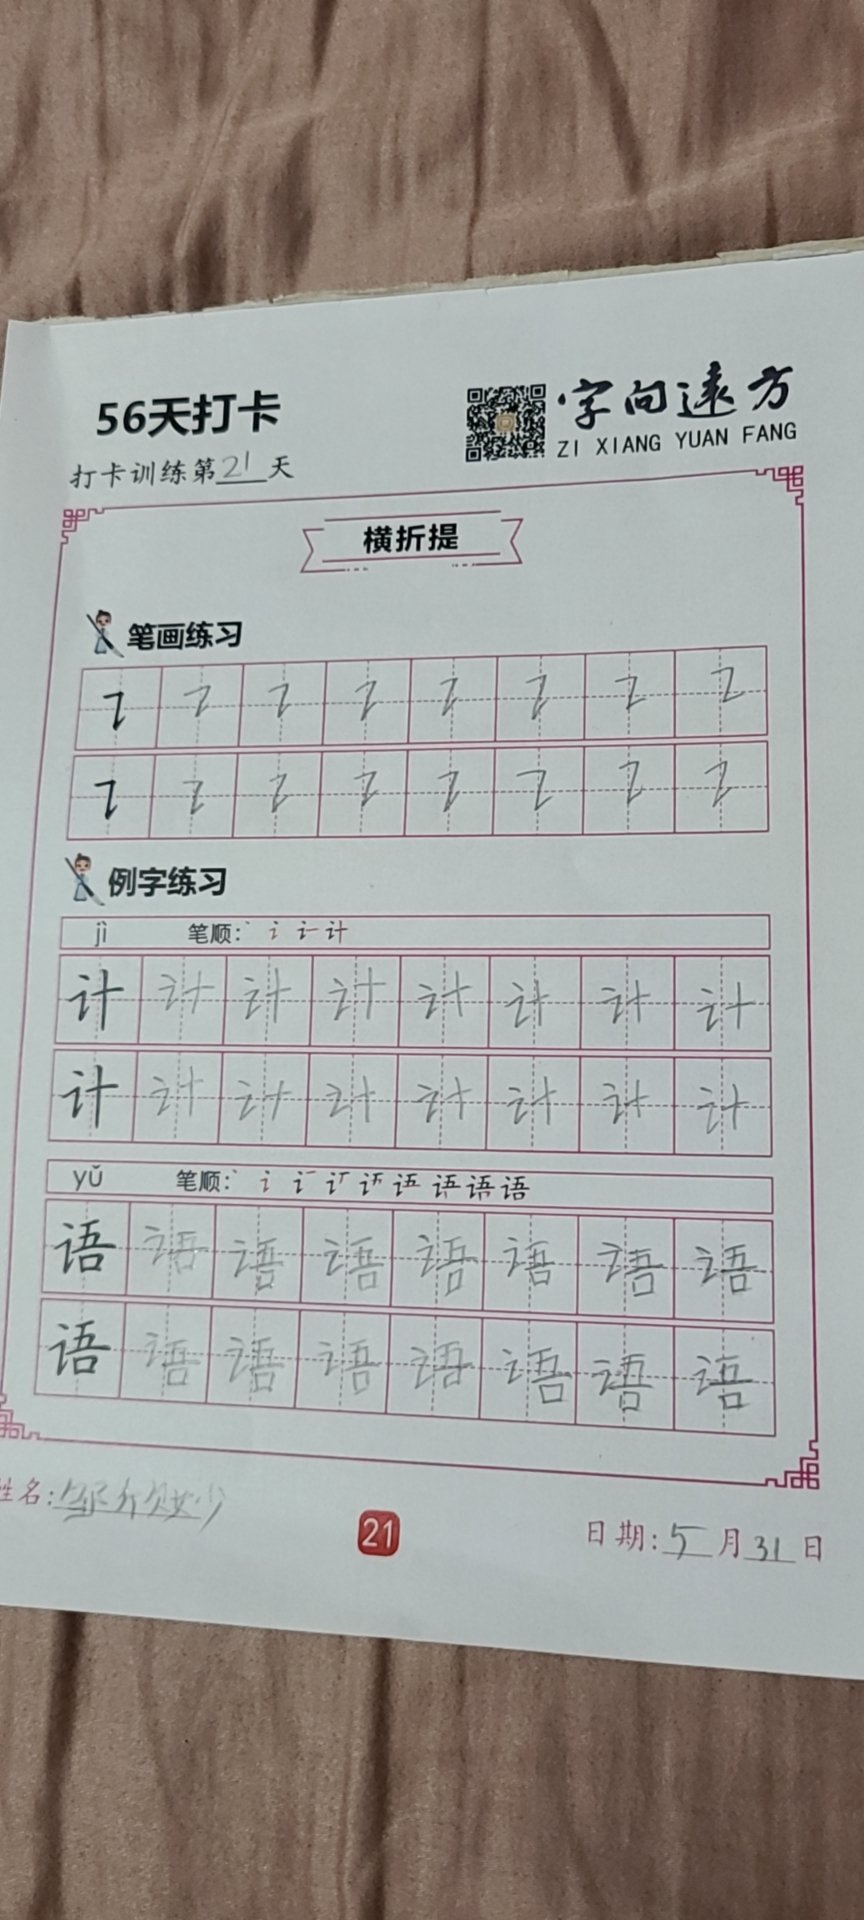 56天打卡
字向遠方
ZI XIANG YUAN FANG
打卡训练第21天
横折提
笔画练习
例字练习
jì 笔顺:丶 讠 计
计 计 计 计 计 计 计 计
计 计 计 计 计 计 计 计
yǔ 笔顺:丶 讠 语 语 语
语 语 语 语 语 语 语 语
语 语 语 语 语 语 语 语
姓名:
21
日期:5月31日